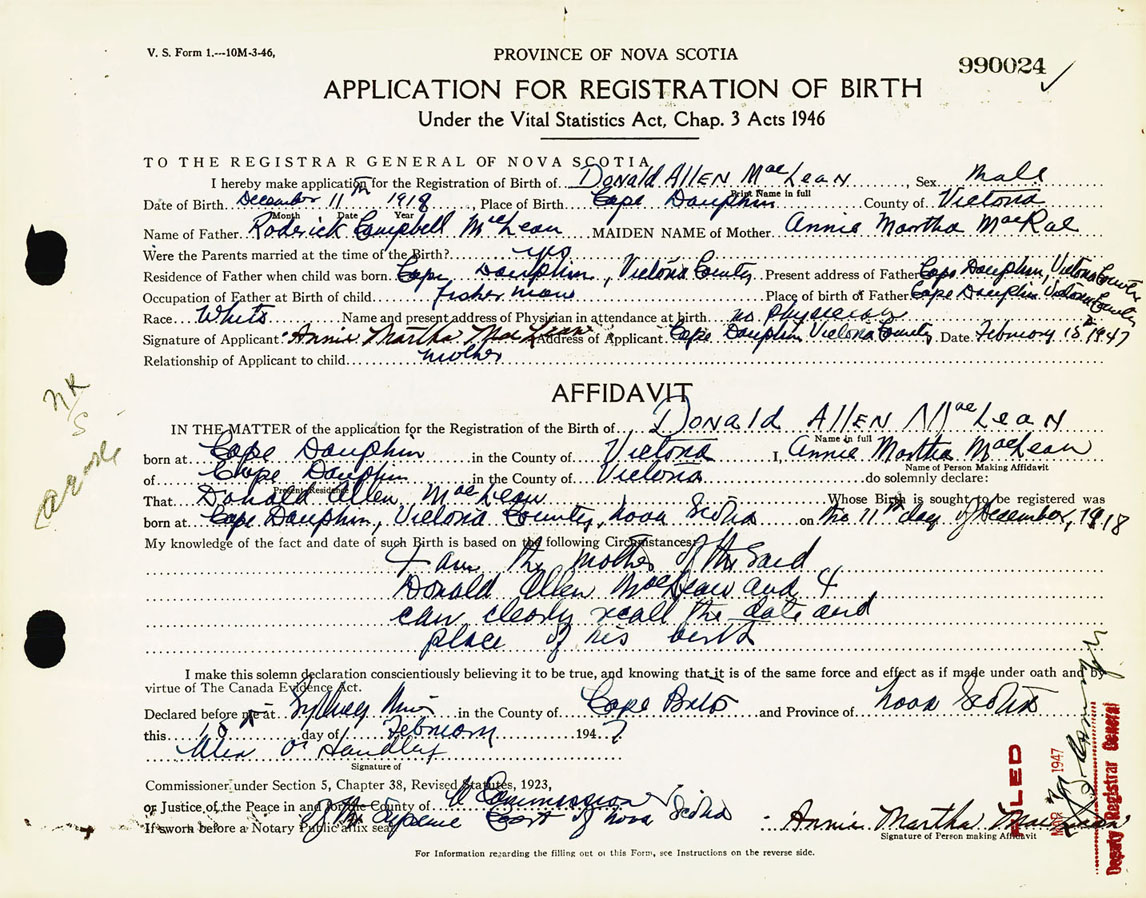 V. S. Form 1.---10M-3-46,
PROVINCE OF NOVA SCOTIA
990024
APPLICATION FOR REGISTRATION OF BIRTH
Under the Vital Statistics Act, Chap. 3 Acts 1946
TO THE REGISTRAR GENERAL OF NOVA SCOTIA
I hereby make application for the Registration of Birth of Donald Allen MacLean, Sex Male
Print Name in full
Date of Birth December 11th 1918, Place of Birth Cape Dauphin County of Victoria
Month Date Year
Name of Father Roderick Campbell McLean MAIDEN NAME of Mother Annie Martha MacRae
Were the Parents married at the time of the Birth? yes
Residence of Father when child was born Cape Dauphin, Victoria County Present address of Father Cape Dauphin, Victoria County
Occupation of Father at Birth of child fisherman Place of birth of Father Cape Dauphin Victoria County
Race White Name and present address of Physician in attendance at birth no physician
Signature of Applicant Annie Martha MacLean Address of Applicant Cape Dauphin Victoria County Date February 18th 1947
Relationship of Applicant to child mother
AFFIDAVIT
IN THE MATTER of the application for the Registration of the Birth of Donald Allen MacLean
Name in full
born at Cape Dauphin in the County of Victoria I, Annie Martha MacLean
Name of Person Making Affidavit
of Cape Dauphin in the County of Victoria do solemn declare:
Present Residence
That Donald Allen MacLean Whose Birth is sought to be registered was
born at Cape Dauphin, Victoria County, Nova Scotia on the 11th day of December, 1918
My knowledge of the fact and date of such Birth is based on the following Circumstances:
I am the mother of the said
Donald Allen MacLean and I
can clearly recall the date and
place of his birth
I make this solemn declaration conscientiously believing it to be true, and knowing that it is of the same force and effect as if made under oath and by
virtue of The Canada Evidence Act.
Declared before me at Sydney Mines in the County of Cape Breton and Province of Nova Scotia
this 18th day of February 1947
Alex O'Handley
Signature of
Commissioner under Section 5, Chapter 38, Revised Statutes, 1923,
or Justice of the Peace in and for the County of A Commissioner
of the Supreme Court of Nova Scotia
If sworn before a Notary Public affix seal
Annie Martha MacLean
Signature of Person making Affidavit
For Information regarding the filling out of this Form, see Instructions on the reverse side.
FILED
1947
Deputy Registrar General